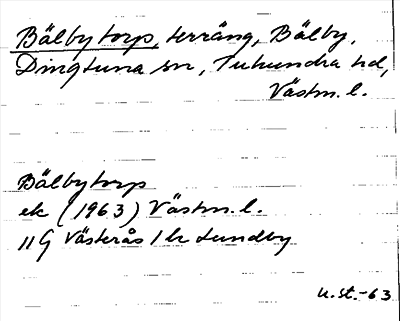 Bälbytorp, terräng, Bälby,
Dingtuna sn, Tuhundra hd,
Västm. l.
Bälbytorp
ek (1963) Västm. l.
11 G Västerås 1 h Lundby
u.st.-63